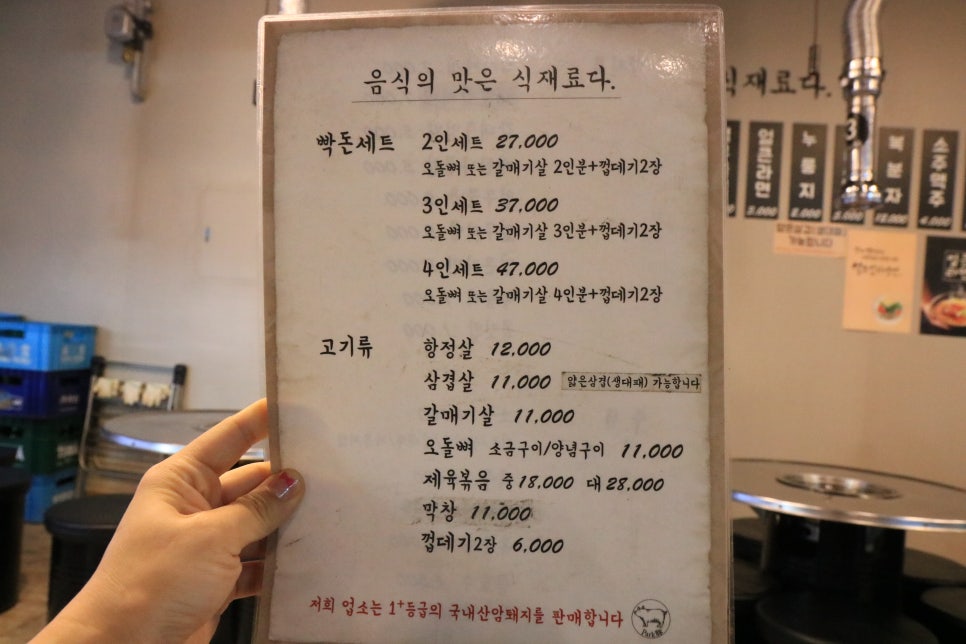 음식의 맛은 식재료다.
빡돈세트 2인세트 27,000
오돌뼈 또는 갈매기살 2인분+껍데기2장
3인세트 37,000
오돌뼈 또는 갈매기살 3인분+껍데기2장
4인세트 47,000
오돌뼈 또는 갈매기살 4인분+껍데기2장
고기류 항정살 12,000
삼겹살 11,000 얇은삼겹(생대패) 가능합니다
갈매기살 11,000
오돌뼈 소금구이/양념구이 11,000
제육볶음 중 18,000 대 28,000
막창 11,000
껍데기2장 6,000
저희 업소는 1+등급의 국내산암돼지를 판매합니다
식재료다.
3
얼큰라면
누룽지
복분자
소주맥주
4,000
가능합니다